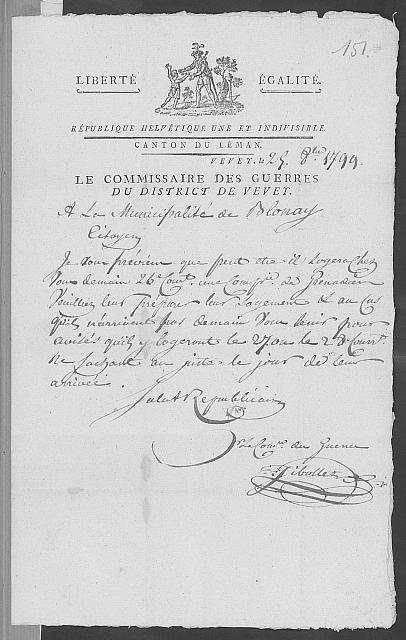 151.
LIBERTÉ ÉGALITÉ.
RÉPUBLIQUE HELVÉTIQUE UNE ET INDIVISIBLE.
CANTON DU LÉMAN.
VEVEY, le 25 8bre 1799
LE COMMISSAIRE DES GUERRES
DU DISTRICT DE VEVEY.
A La Municipalité de Blonay
Citoyens
Je vous préviens que peut etre il Logera chez
Vous demain 26e Cour.t une Comp.ie de Grenadiers
Veuillez leur Préparer leur Logement & au Cas
qu'ils n'arrivent pas demain Vous leur pour
avisés qu'ils y logeront le 27 ou le 28 Cour.t
Ne Sachant au juste le jour de leur
arrivée.
Salut Républicain
Le Com.re des Guerres